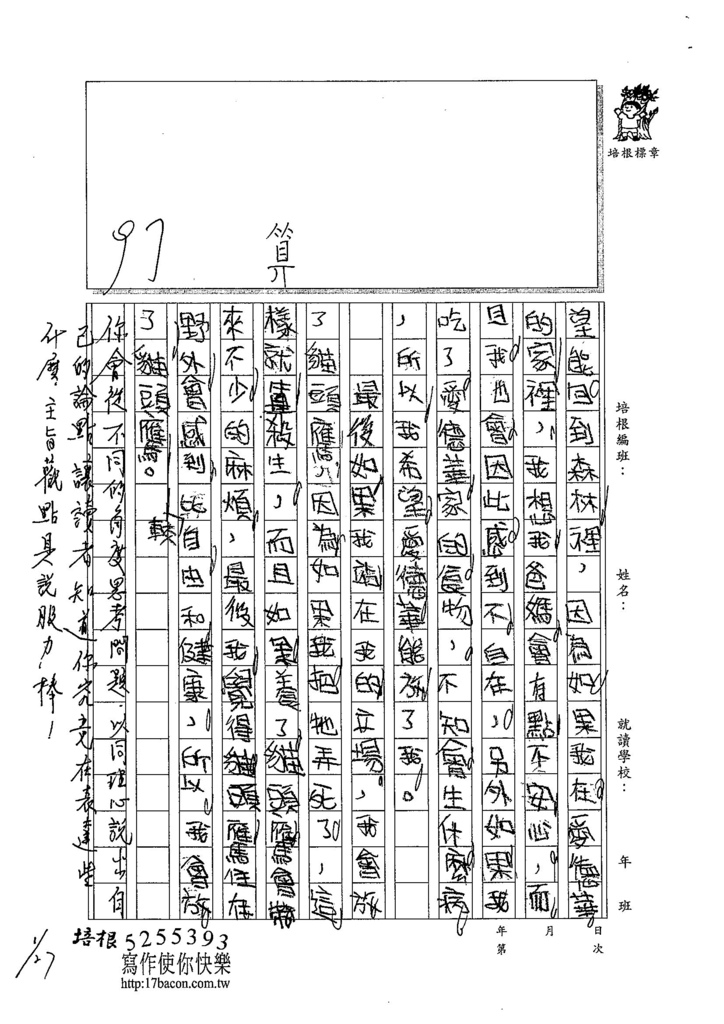 培根標章
97
算
培根編班：
姓名：
就讀學校：
年 班
望能回到森林裡，因為如果我在愛德華
的家裡，我想我爸媽會有點不安心，而
且我也會因此感到不自在，另外如果我
吃了愛德華家的食物，不知會生什麼病
，所以我希望愛德華能放了我。
最後如果我站在我的立場，我會放
了貓頭鷹，因為如果我把牠弄死了，這
樣就算殺生，而且如果養了貓頭鷹會帶
來不少的麻煩，最後我覺得貓頭鷹住在
野外會感到比較自由和健康，所以我會放
了貓頭鷹。
你會從不同的角度思考問題，以同理心說出自
己的論點，讓讀者知道你究竟在表達些
什麼，主旨觀點具說服力，棒！
年 月 日
第 次
1/27
培根 5255393
寫作使你快樂
http:17bacon.com.tw